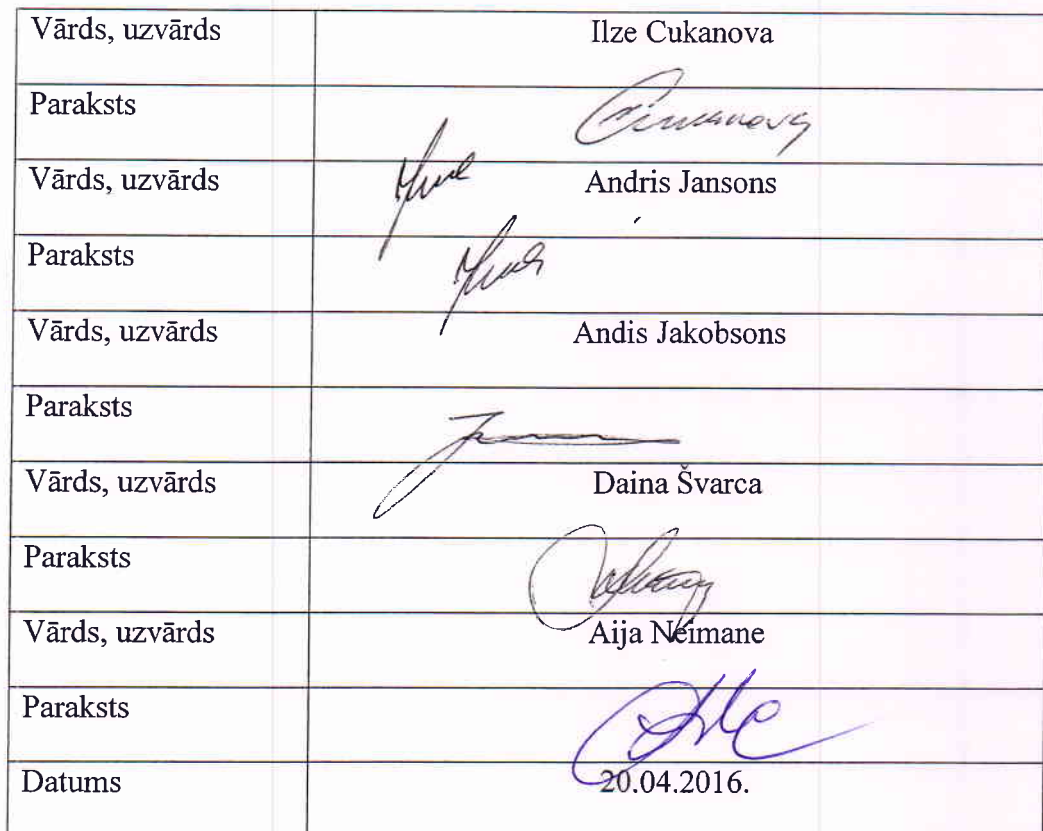 Vārds, uzvārds Ilze Cukanova
Paraksts
Vārds, uzvārds Andris Jansons
Paraksts
Vārds, uzvārds Andis Jakobsons
Paraksts
Vārds, uzvārds Daina Švarca
Paraksts
Vārds, uzvārds Aija Neimane
Paraksts
Datums 20.04.2016.